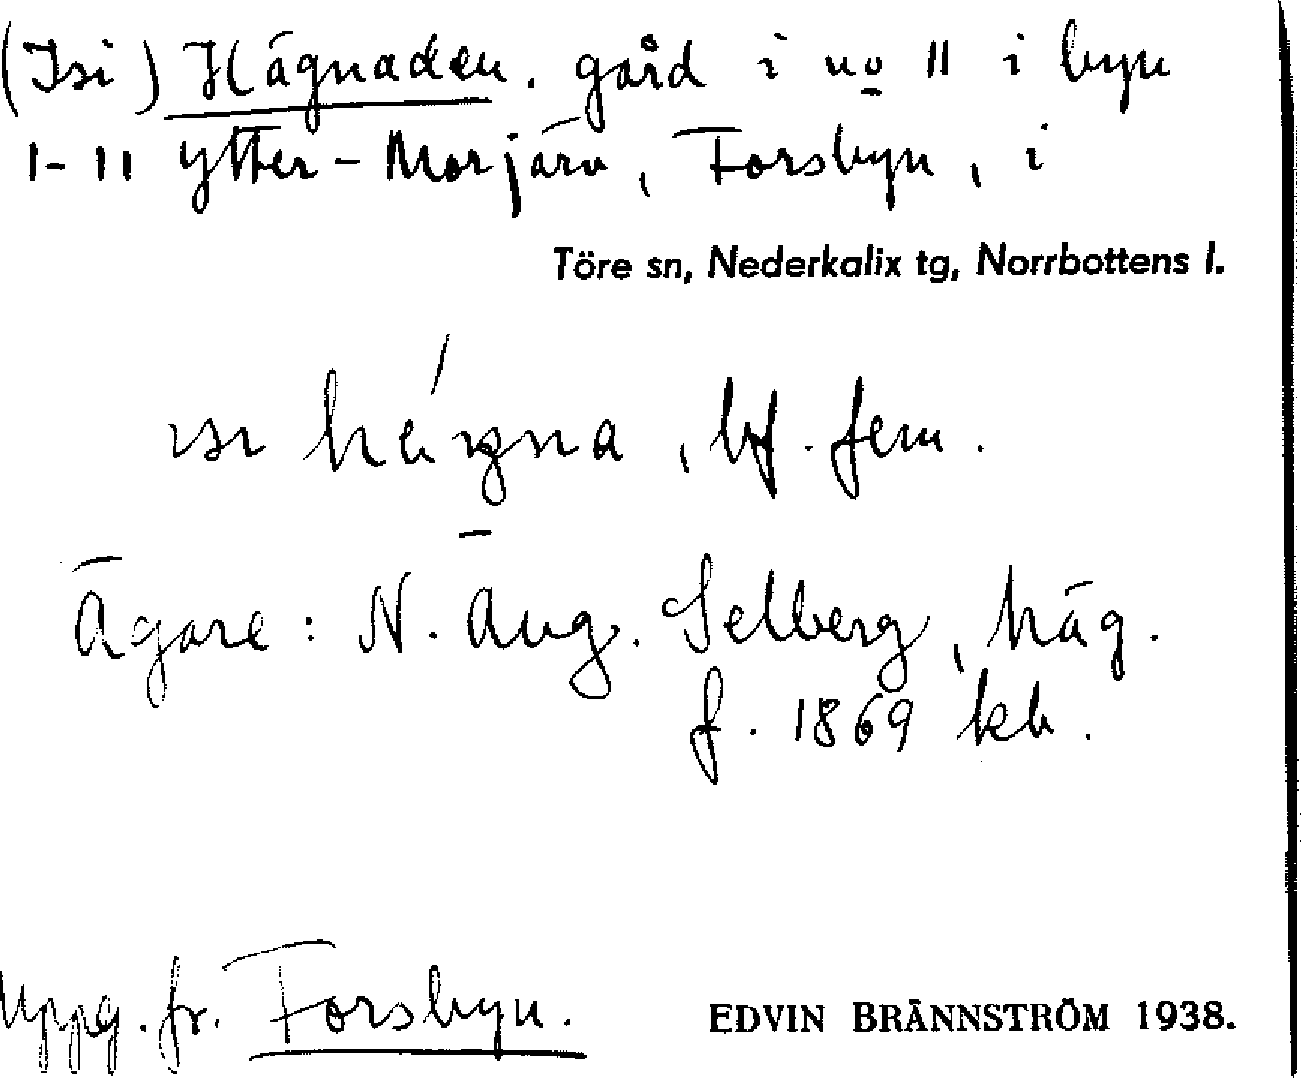 (Isi) Hägnaden. gård i no 11 i byn
1-11 Ytter-Morjärv, Forsbyn, i
Töre sn, Nederkalix tg, Norrbottens l.
ısı , bf. fem.
Ägare: N. Aug. Selberg, häg.
f. 1869 kb.
Uppg. fr. Forsbyn.
EDVIN BRÄNNSTRÖM 1938.